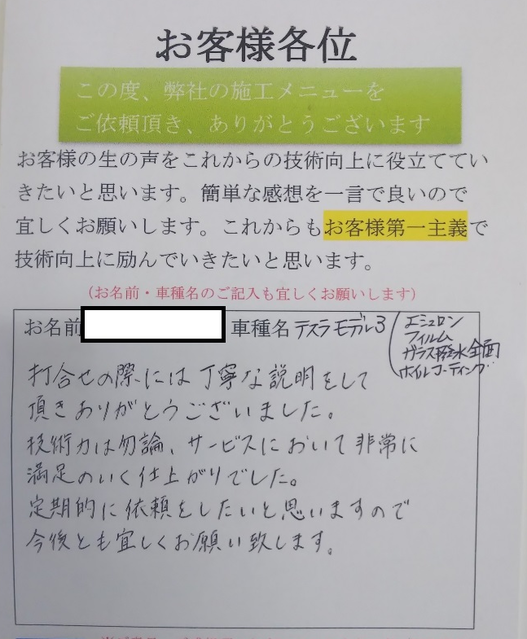 お客様各位
この度、弊社の施工メニューを
ご依頼頂き、ありがとうございます
お客様の生の声をこれからの技術向上に役立ててい
きたいと思います。簡単な感想を一言で良いので
宜しくお願いします。これからもお客様第一主義で
技術向上に励んでいきたいと思います。
(お名前・車種名のご記入も宜しくお願いします)
お名前 車種名 テスラ モデル3
エシュロン
フィルム
ガラス撥水全面
ホイルコーティング
打合せの際には丁寧な説明をして
頂きありがとうございました。
技術力は勿論、サービスにおいて非常に
満足のいく仕上がりでした。
定期的に依頼をしたいと思いますので
今後とも宜しくお願い致します。